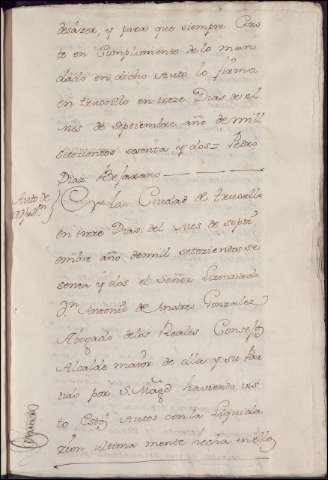 desázer, y para que siempre Cons
te en Cumplimento de lo man
dado en dicho Auto lo firma
en truxillo en treze Dias de el
mes de septiembre año de mill
setecientos sesenta, y dos = Pedro
Diaz Befarano
Auto de
En la Ciudad de truxillo
en treze Dias del mes de sept
iembre año demill setezientos se
senta y dos el Señor Lizenciado
Dn Antonio de Andres Gonzalez
Abogado delos Reales Consejos
Alcalde maior de ella y su Par
tido por S. Magd haviendo vis
to Estos Autos con la Liquida
zion ultima mente hecha en ellos